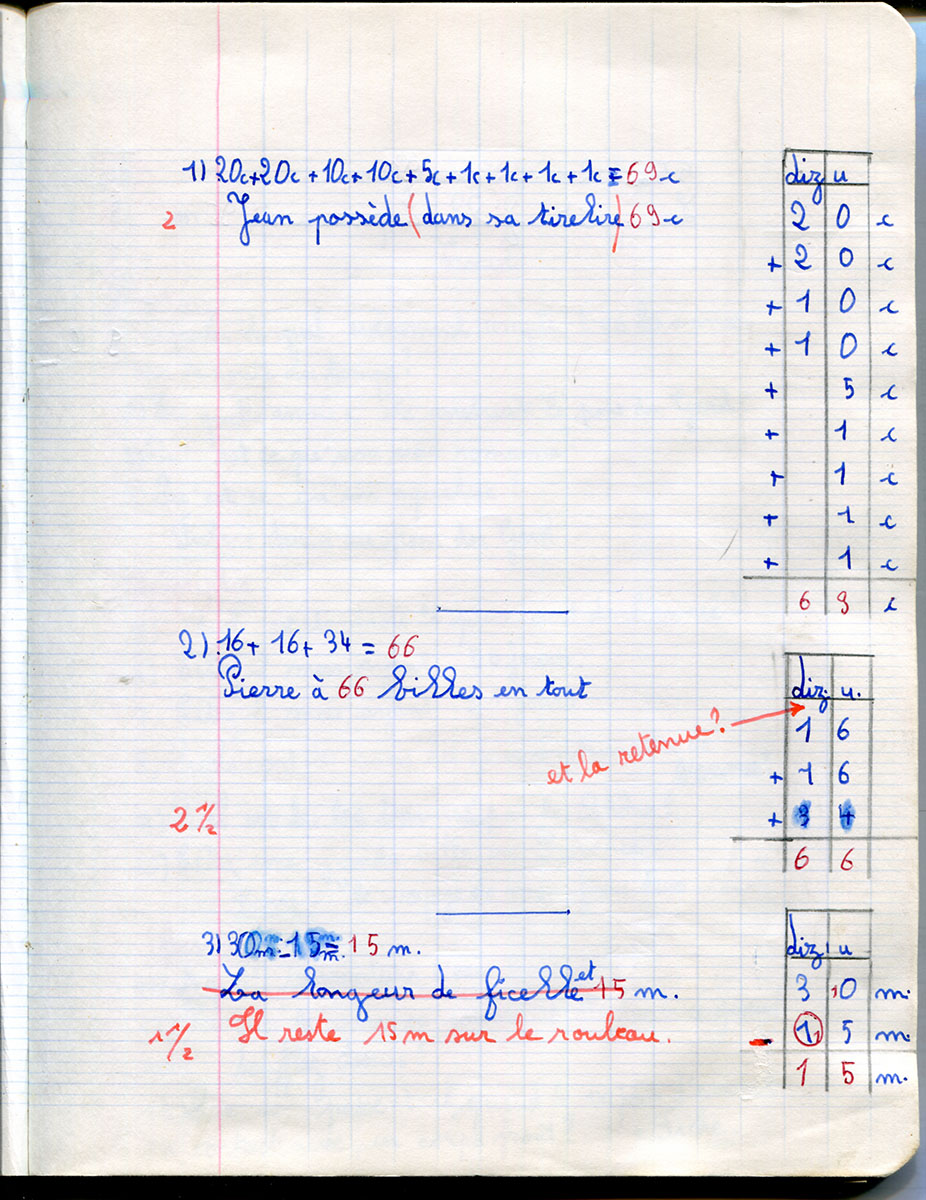 1) 20c+20c+10c+10c+5c+1c+1c+1c+1c=69c
2 Jean possède (dans sa tirelire) 69c
diz u
20 c
+20 c
+10 c
+10 c
+5 c
+1 c
+1 c
+1 c
+1 c
69 c
2) 16+16+34=66
Pierre à 66 billes en tout
et la retenue?
2 1/2
diz. u.
16
+16
+34
66
3) 30m.-15m.=15 m.
La longeur de ficelle et 15 m.
1 1/2 Il reste 15m sur le rouleau.
diz. u
3 10 m.
- 11 5 m.
15 m.